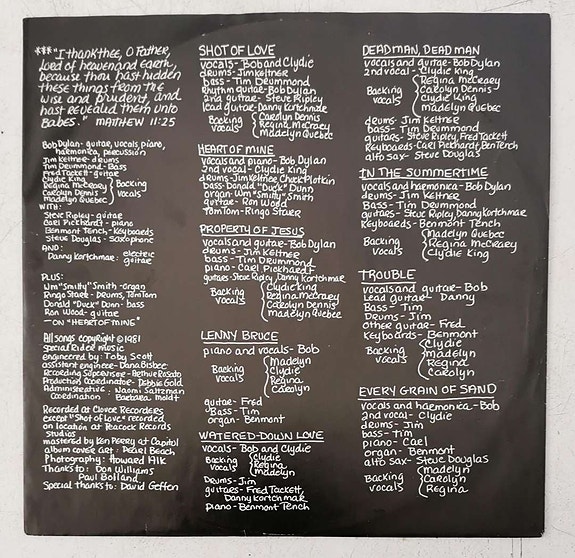 ***"I thank thee, O Father,
lord of heaven and earth,
because thou hast hidden
these things from the
wise and prudent, and
hast revealed them unto
babes." MATTHEW 11:25
Bob Dylan- guitar, vocals, piano,
harmonica, percussion
Jim Keltner- drums
Tim Drummond- Bass
Fred Tackett- guitar
Clydie King
Regina McCreary
Carolyn Dennis
Madelyn Quebec
Backing
vocals
WITH:
Steve Ripley- guitar
Carl Pickhardt- piano
Benmont Tench- Keyboards
Steve Douglas- Saxophone
AND:
Danny Kortchmar: electric
guitar
PLUS:
Wm "Smitty" Smith -organ
Ringo Starr- Drums, TomTom
Donald "Duck" Dunn- bass
Ron Wood- guitar
—ON "HEART OF MINE"
All songs copyright © 1981
Special Rider music
engineered by: Toby Scott
assistant engineer- Dana Bisbee
Recording Supervisor- Bethie Rosato
Production Coordinator- Debbie Gold
Administrative: Naomi Saltzman
Coordination Barbara Moldt
Recorded at Clover Recorders
except "Shot of Love" recorded
on location at Peacock Records
Studios
mastered by Ken Perry at Capitol
album cover Art: Pearl Beach
Photography: Howard Alk
Thanks to: Don Williams
Paul Bolland
Special thanks to: David Geffen
SHOT OF LOVE
vocals- Bob and Clydie
drums- Jim Keltner
Bass- Tim Drummond
Rhythm guitar- Bob Dylan
2nd guitar- Steve Ripley
Lead guitar- Danny Kortchmar
Backing
vocals
Carolyn Dennis
Regina McCreary
Madelyn Quebec
HEART OF MINE
vocals and piano- Bob Dylan
2nd vocal- Clydie King
drums- Jim Keltner, Chuck Plotkin
bass- Donald "Duck" Dunn
organ- Wm "Smitty" Smith
guitar- Ron Wood
TomTom- Ringo Starr
PROPERTY OF JESUS
vocals and guitar- Bob Dylan
drums- Jim Keltner
bass- Tim Drummond
piano- Carl Pickhardt
guitars- Steve Ripley, Danny Kortchmar
Backing
vocals
Clydie King
Regina McCreary
Carolyn Dennis
Madelyn Quebec
LENNY BRUCE
piano and vocals- Bob
Backing
vocals
Madelyn
Clydie
Regina
Carolyn
guitar- Fred
Bass- Tim
organ- Benmont
WATERED-DOWN LOVE
vocals- Bob and Clydie
Backing
vocals
Clydie
Regina
Madelyn
Drums- Jim
guitars- Fred Tackett,
Danny Kortchmar
piano- Benmont Tench
DEAD MAN, DEAD MAN
vocals and guitar- Bob Dylan
2nd vocal- Clydie King
Backing
vocals
Regina McCreary
Carolyn Dennis
Clydie King
Madelyn Quebec
drums- Jim Keltner
bass- Tim Drummond
guitars- Steve Ripley, Fred Tackett
Keyboards- Carl Pickhardt, Ben Tench
alto sax- Steve Douglas
IN THE SUMMERTIME
vocals and harmonica- Bob Dylan
drums- Jim Keltner
Bass- Tim Drummond
guitars- Steve Ripley, Danny Kortchmar
Keyboards- Benmont Tench
Backing
vocals
Madelyn Quebec
Regina McCreary
Clydie King
TROUBLE
vocals and guitar- Bob
Lead guitar- Danny
Bass- Tim
Drums- Jim
other guitar- Fred
Keyboards- Benmont
Backing
vocals
Clydie
Madelyn
Regina
Carolyn
EVERY GRAIN OF SAND
vocals and harmonica- Bob
2nd vocal- Clydie
drums- Jim
bass- Tim
piano- Carl
organ- Benmont
alto sax- Steve Douglas
Backing
vocals
Madelyn
Carolyn
Regina